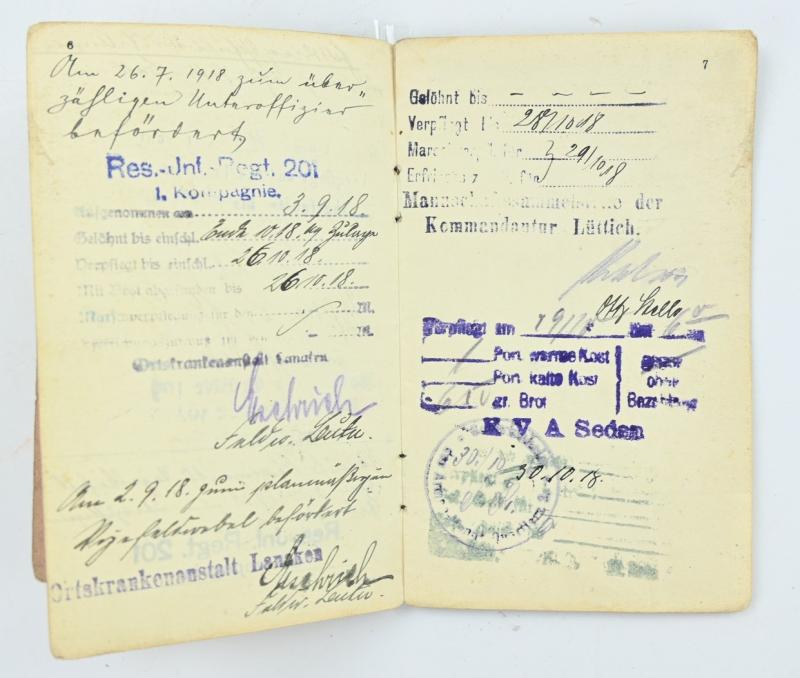 6
Am 26.7.1918 zum über-
zähligen Unteroffizier
befördert,
Res.-Inf.-Regt. 201
1. Kompagnie.
Aufgenommen am 3.9.18.
Gelöhnt bis einschl. Ende 10.18. Zulage
Verpflegt bis einschl. 26.10.18.
Mit Brot abgefunden bis 26.10.18.
Marschverpflegung für den M.
M.
Ortskrankenanstalt Lanaken
Feldw. Leutn.
Am 2.9.18. zum planmäßigen
Vizefeldwebel befördert
Ortskrankenanstalt Lanaken
Feldw. Leutn.
7
Gelöhnt bis – – – –
Verpflegt bis 28/10 18
Marschverpfl. für } 29/10 18
für
Mannschaftssammelstelle der
Kommandantur Lüttich.
Verpflegt am
Port. warme Kost
Port. kalte Kost
gr. Brot
gegen
ohne
Bezahlung
K V A Sedan
30.10.18.